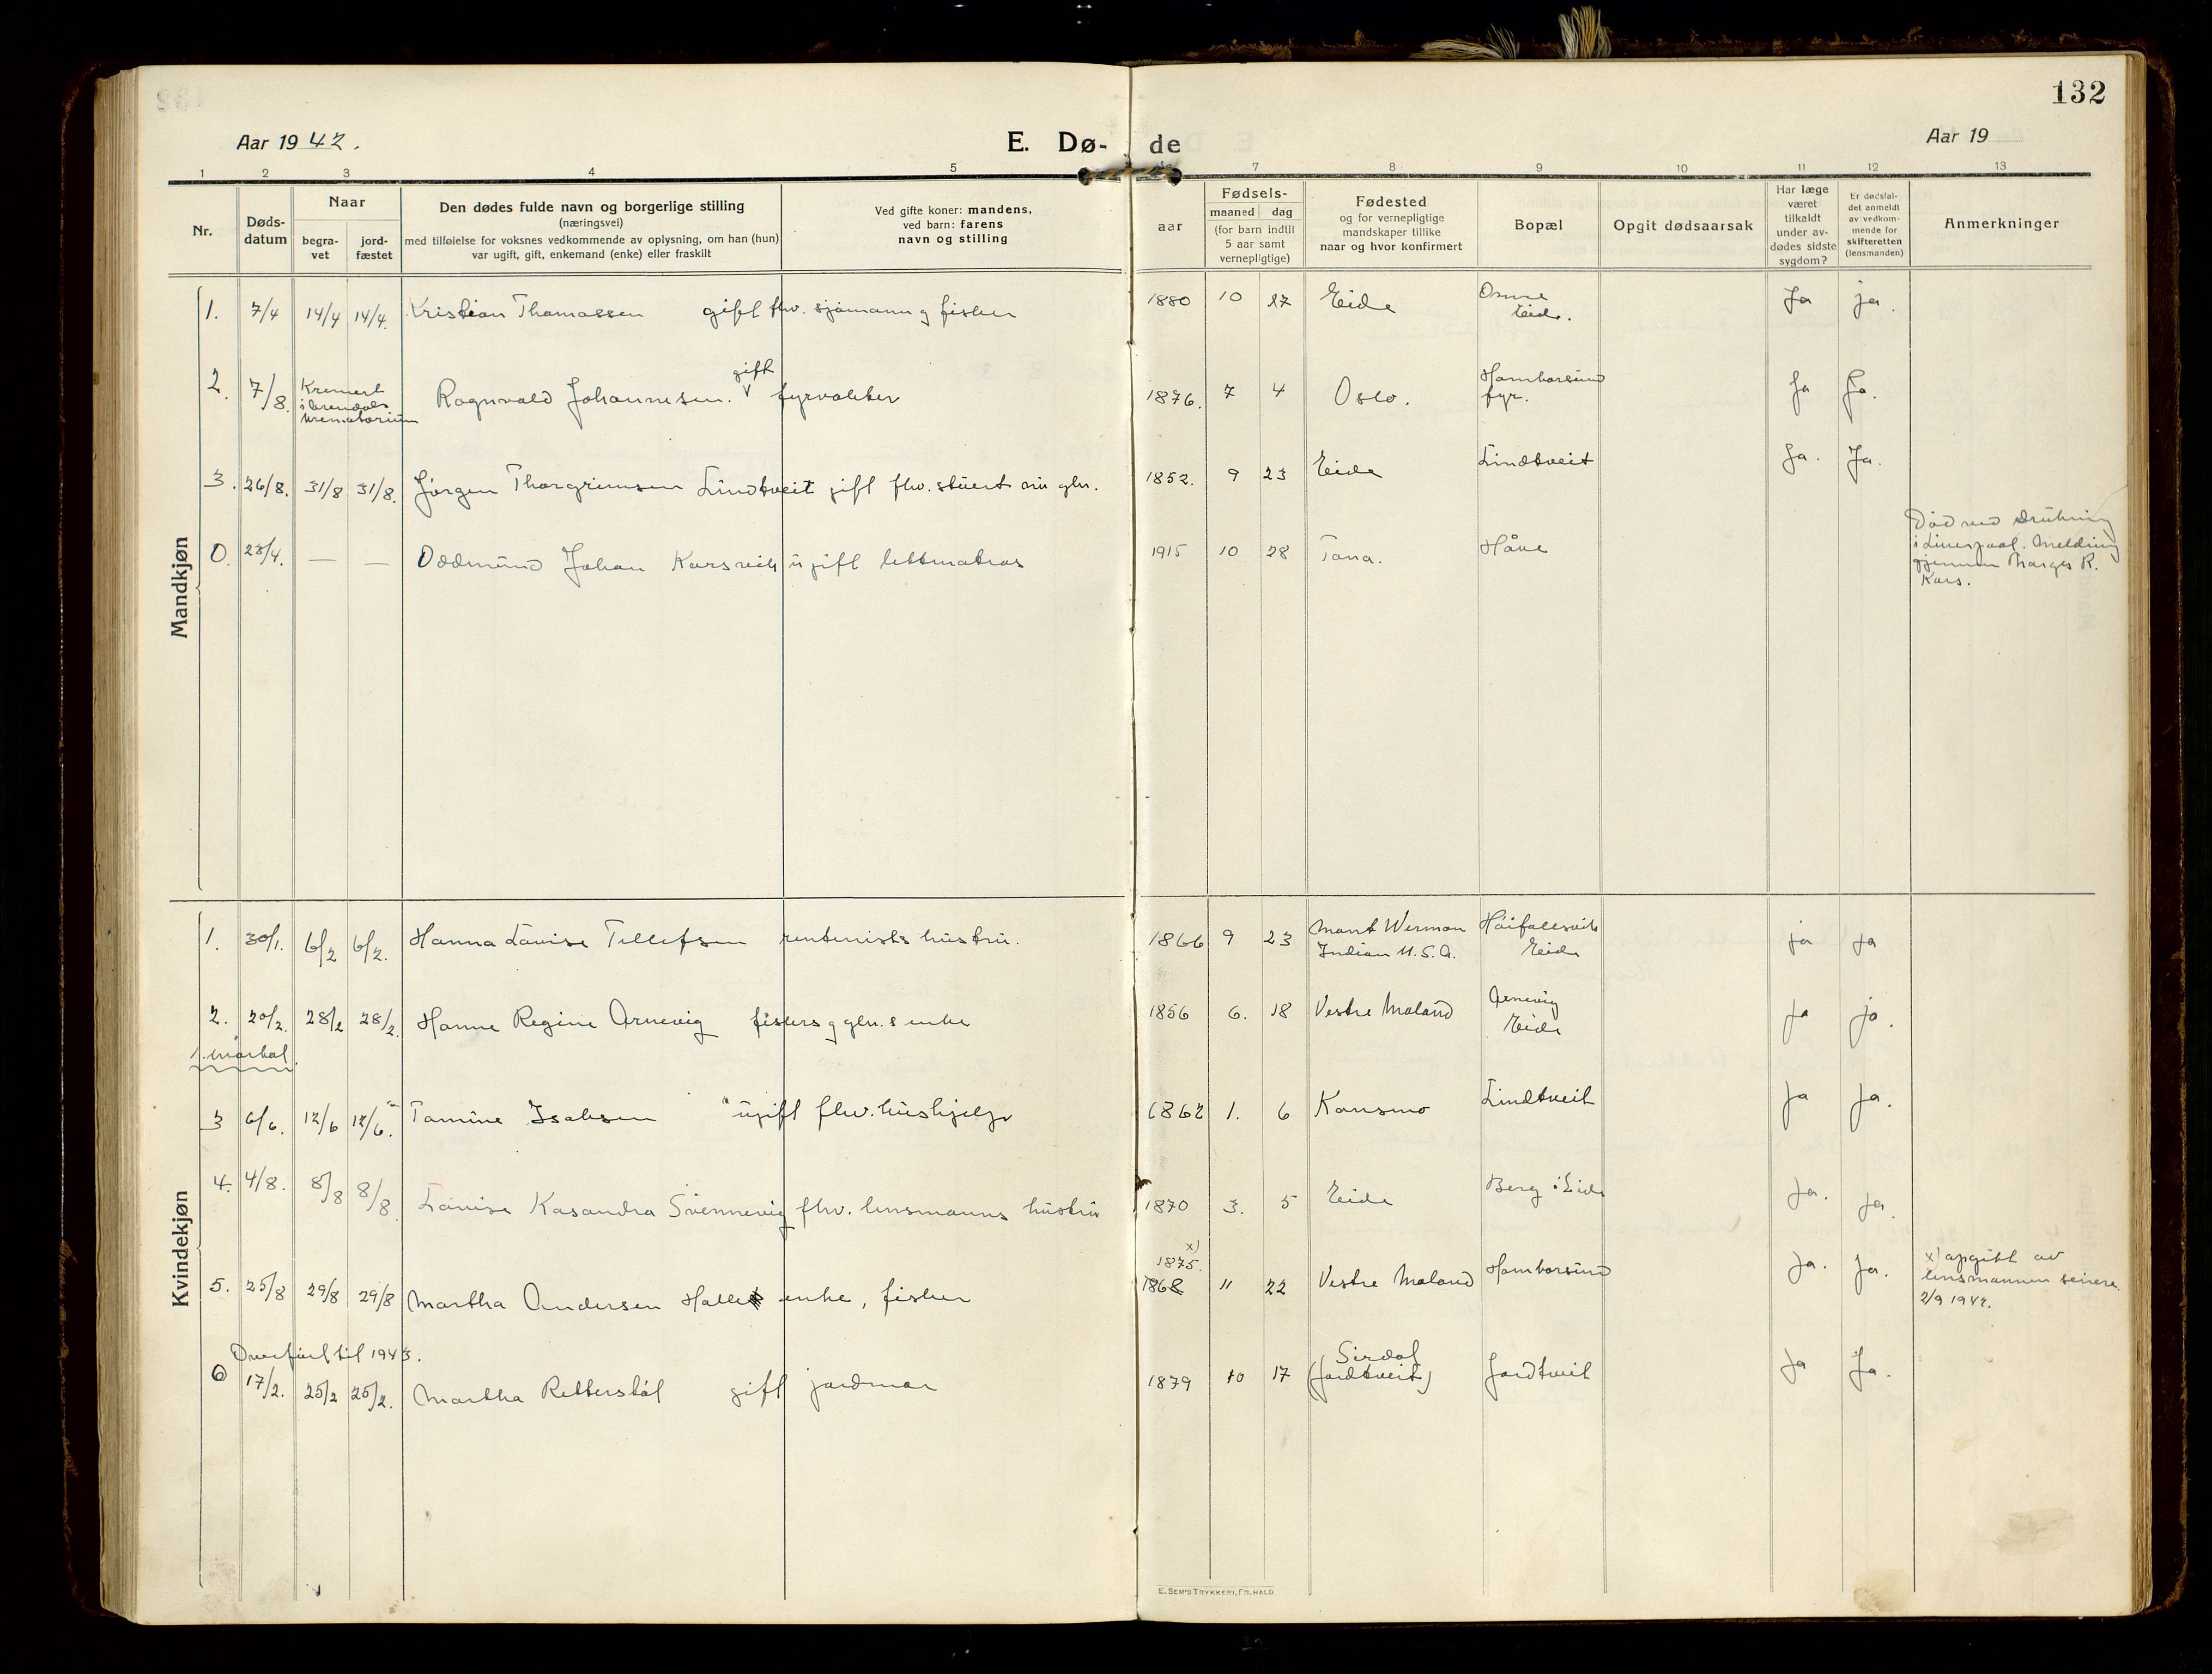 132
Aar 1942.
E. Dø- de
Aar 19
1 2 3 4 5 7 8 9 10 11 12 13
Nr.
Døds-
datum
Naar
begra-
vet
jord-
fæstet
Den dødes fulde navn og borgerlige stilling
(næringsvei)
med tilføielse for voksnes vedkommende av oplysning, om han (hun)
var ugift, gift, enkemand (enke) eller fraskilt
Ved gifte koner: mandens,
ved barn: farens
navn og stilling
aar
Fødsels-
maaned dag
(for barn indtil
5 aar samt
vernepligtige)
Fødested
og for vernepligtige
mandskaper tillike
naar og hvor konfirmert
Bopæl
Opgit dødsaarsak
Har læge
været
tilkaldt
under av-
dødes sidste
sygdom?
Er dødsfal-
det anmeldt
av vedkom-
mende for
skifteretten
(lensmanden)
Anmerkninger
Mandkjøn
1. 7/4 14/4 14/4. Kristian Thomassen gift fhv. sjømann g fisker 1880 10 17 Eide Osme Eide. Ja ja.
2. 7/8. Kremert
i Arendals
krematorium
Ragnvald Johannesen. gift fyrvokter 1876. 7 4 Oslo. Homborsund
fyr. Ja Ja.
3. 26/8. 31/8 31/8. Jørgen Thorgrimsen Lindtveit gift fhv. stuert nu gbr. 1852. 9 23 Eide Lindtveit Ja. Ja.
0. 28/4. — — Oddmund Johan Korsvik ugift lettmatros 1915 10 28 Tana. Håve
Død ved drukning
i Liverpool. Melding
gjennem Norges R.
Kors.
Kvindekjøn
1. 30/1. 6/2 6/2. Hanna Lovise Tellefsen rentenists hustru. 1866 9 23 Mont Wermon
Indian U.S.A. Høifallsvik
Eide ja ja
2. 20/2. 28/2 28/2. Hanne Regine Arnevig fiskers g gbr.s enke 1856 6. 18 Vestre Moland Arnevig
Eide ja ja.
3 6/6. 12/6 12/6. Tomine Isaksen ugift fhv. hushjelp 1862 1. 6 Konsmo Lindtveit ja ja.
4. 4/8. 8/8 8/8. Lovise Kasandra Svennevig fhv. lensmanns hustru 1870 3. 5 Eide Berg i Eide Ja. ja.
x)
1875.
5. 25/8 29/8 29/8 Martha Andersen Halle enke, fisker 1868 11 22 Vestre Moland Homborsund Ja. ja.
x) opgitt av
lensmannen senere
2/9 1942.
Overført til 1943.
6 17/2. 25/2 25/2. Martha Retterstøl gift jordmor 1879 10 17 Sirdal
(Jordtveit) Jordtveit Ja Ja.
E. SEM'S TRYKKERI, FR.HALD